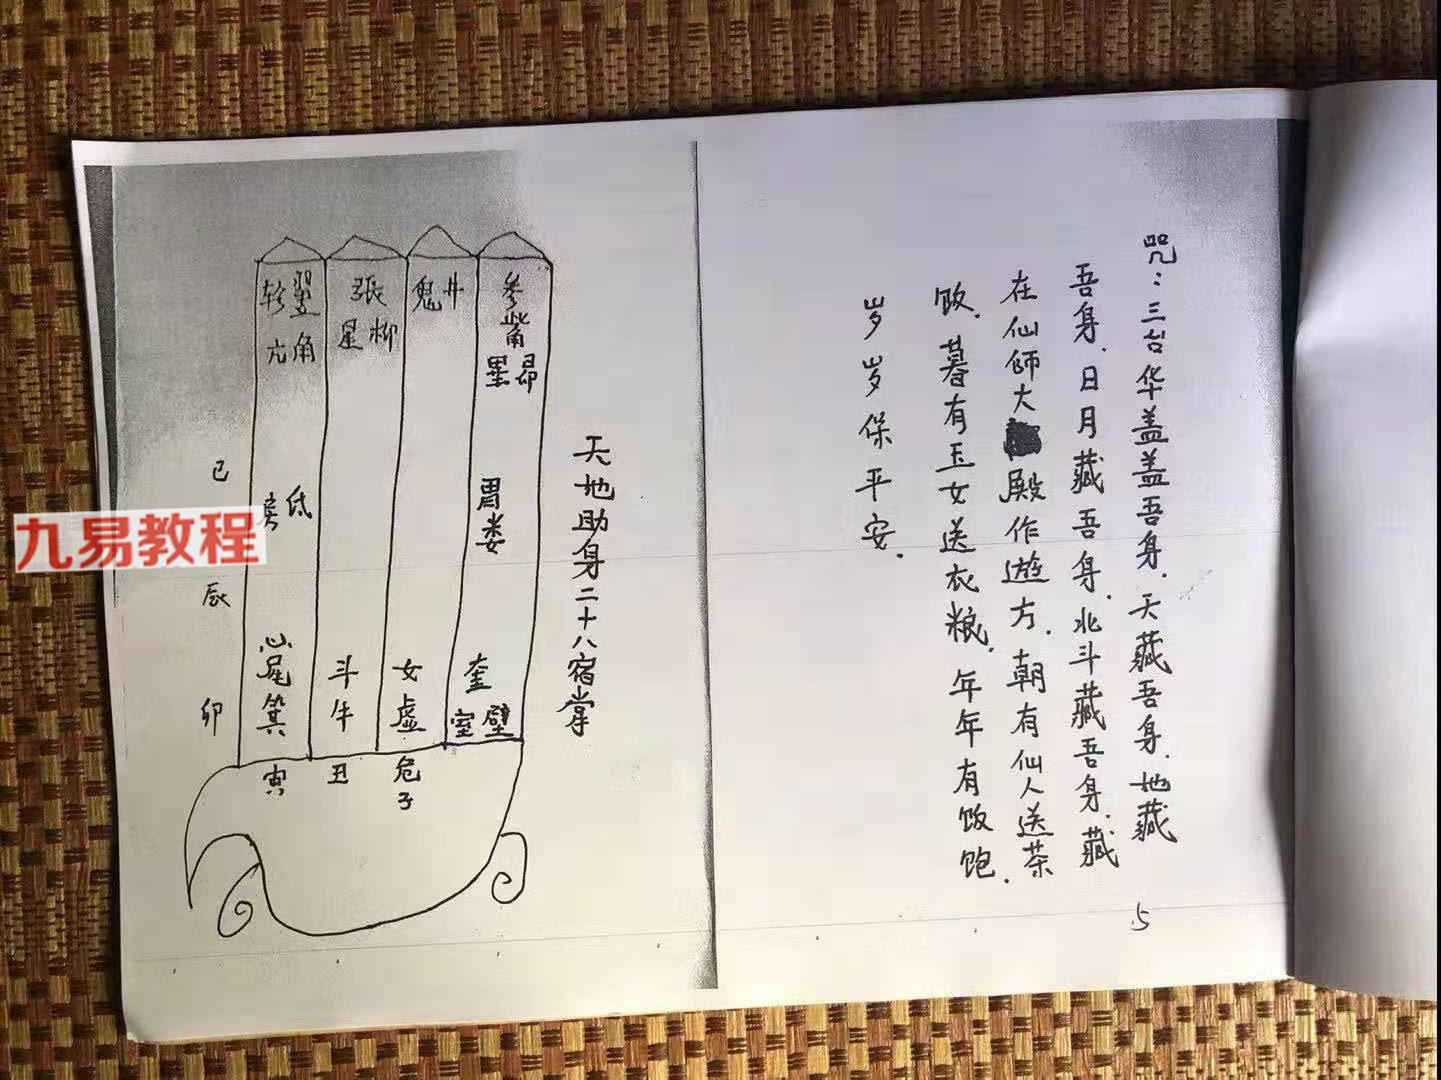 咒：三台华盖盖吾身．天藏吾身．地藏
吾身．日月藏吾身．北斗藏吾身．藏
在仙师大殿作遊方．朝有仙人送茶
饭．暮有玉女送衣粮．年年有饭饱．
岁岁保平安．
5
天地助身二十八宿掌
参
觜
昴
畢
胃
娄
奎
壁
室
井
鬼
柳
張
星
女
虚
危
子
斗
牛
丑
翌
轸
角
亢
氐
房
心
尾
箕
寅
巳
辰
卯
九易教程